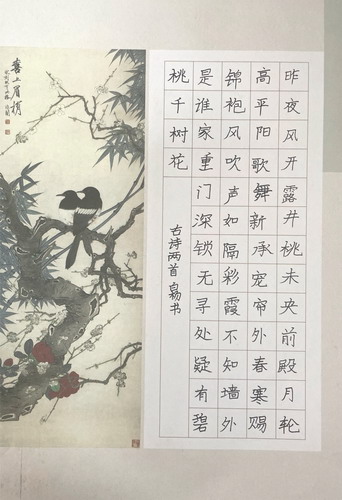 昨夜风开露井桃未央前殿月轮
高平阳歌舞新承宠帘外春寒赐
锦袍风吹声如隔彩霞不知墙外
是谁家重门深锁无寻处疑有碧
桃千树花
古诗两首 书
喜上眉梢